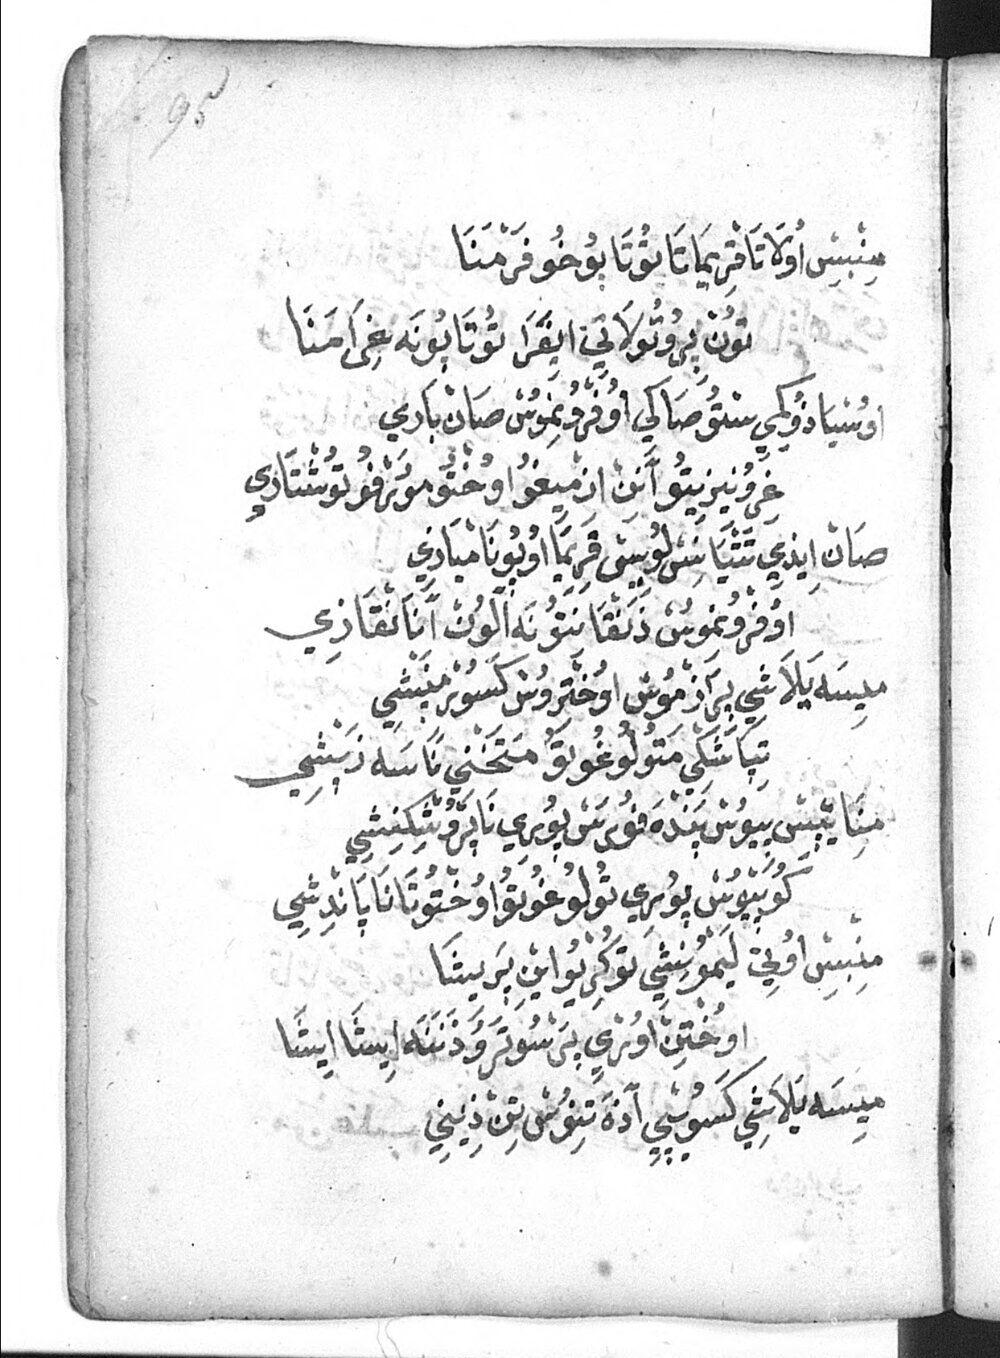 95
مِنْبِسِ اُولَا تَا قْرِيمَاتَا تُوتَا بُوخُو فَرْمَنَا
تُونْ بِرُوتُولَاتِي اِيقَرَا تُوتَا پُونَه غِرَامَنَا
اوُسْيَا ذُوكِمِي سْتُو صَاكِي اوُفْرُونِمُوسْ صَانْ بَارِي
غِرُونِيزِيتُو آنِنْ اِزْمِيغُو اوُخْتُو مُوتْرْفُوتُوسْتَارِي
صَانْ اِيذِي تَتْيَاسَ لُوپِسَى قْرِيمَا اوُپُونَا مْبَارِي
اوُفْرُونِمُوسْ ذَنْقَاسْتُونَه آلُوتْ آنَا نَقَارِي
مِيسَه يَلَاشِي بِرَازْمُوسْ اوُخْتْرُوسْ كَسُونْ مَنِشِي
تِيكَاشَكِي مَتُولُوغُوتُو مَتَخَنِي نَاسَه زَپِشِي
مِنَا پِيسْ پِيوُسْ پَنْدَه فُورَسْ پُورِي نَاپْرُوسْكِنِشِي
كُوپِيوُسْ پُورِي تُولُوغُوتُو اوُخْتُوتَا نَاپَانْدِشِي
مِنْبِسِ اوُتِي لَيْمُونِشِي تُوكِرِيُو اِينْ پَرِيسَا
اوُخْتِنْ اوُرِي پَرْسُوتَرُو ذَنَنَه اِيسَا اِيسَا
مِيسَه يَلَاشِي كَسُوسِيي آذَه تِنُوسْ تِنْ ذِينِي